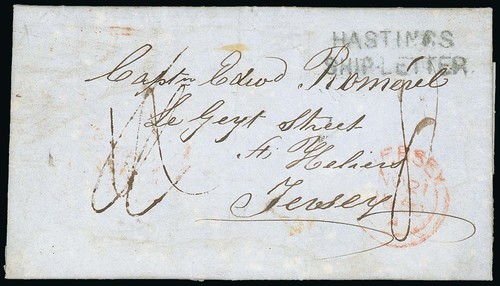 HASTINGS
SHIP-LETTER
Captn Edwd Romeril
Le Geyt Street
St Heliers
Jersey
JERSEY
21